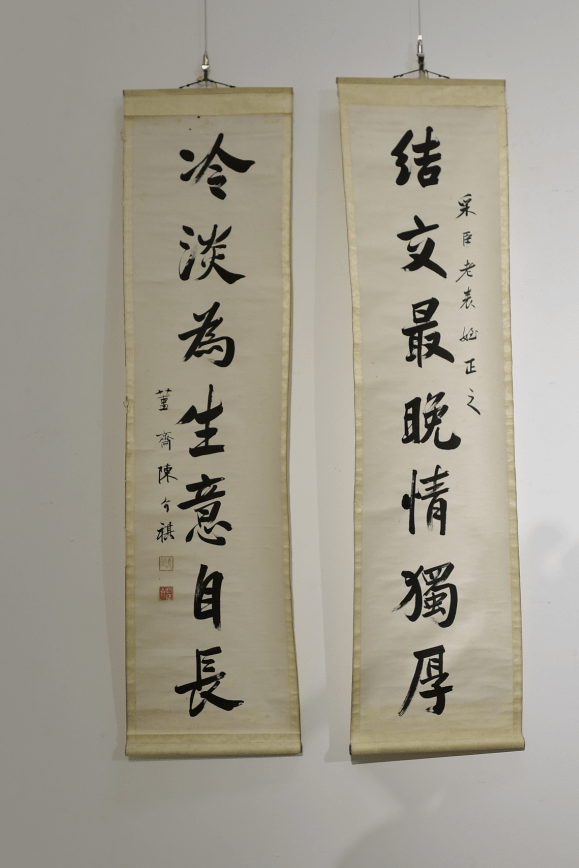 結交最晚情獨厚
采臣老表姪正之
冷淡為生意自長
蓳齋陳介祺